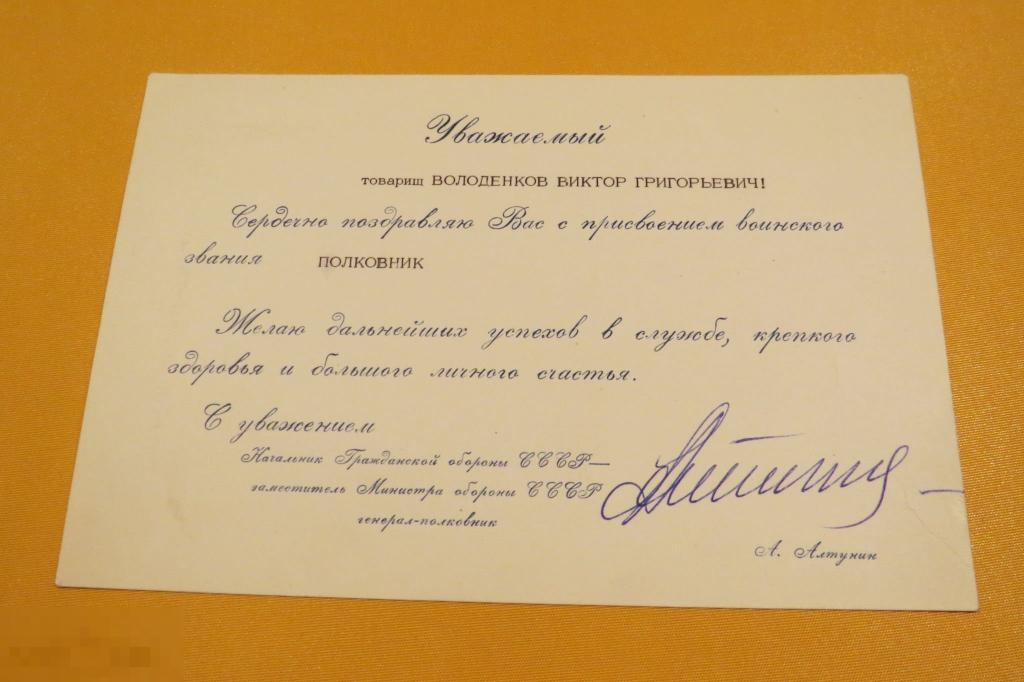 Уважаемый
товарищ ВОЛОДЕНКОВ ВИКТОР ГРИГОРЬЕВИЧ!
Сердечно поздравляю Вас с присвоением воинского
звания ПОЛКОВНИК
Желаю дальнейших успехов в службе, крепкого
здоровья и большого личного счастья.
С уважением
Начальник Гражданской обороны СССР—
заместитель Министра обороны СССР
генерал-полковник
А. Алтунин